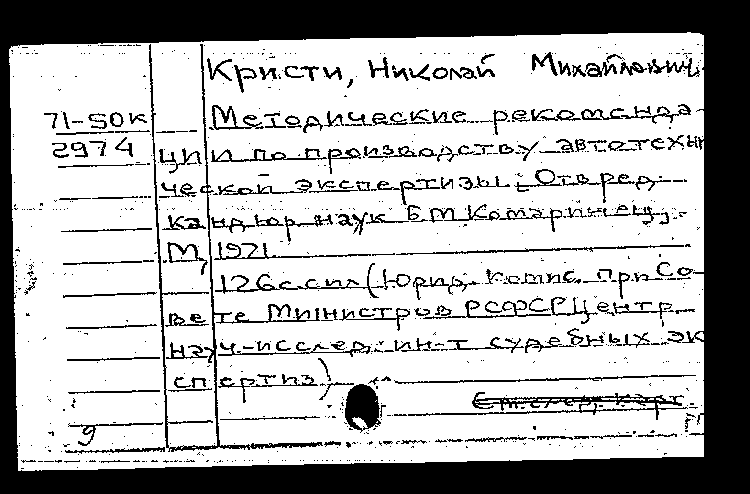 Кристи, Николай Михайлович.
71-50к Методические рекоменда-
2974 ции по производству автотехни
ческой экспертизы. Отв. ред.
канд. юр. наук Б.М. Комаринец.
М, 1971.
126с. с ил. (Юрид. комис. при Со-
вете Министров РСФСР Центр.
науч.-исслед. ин-т судебных эк
спертиз)
См. след. карт.
9